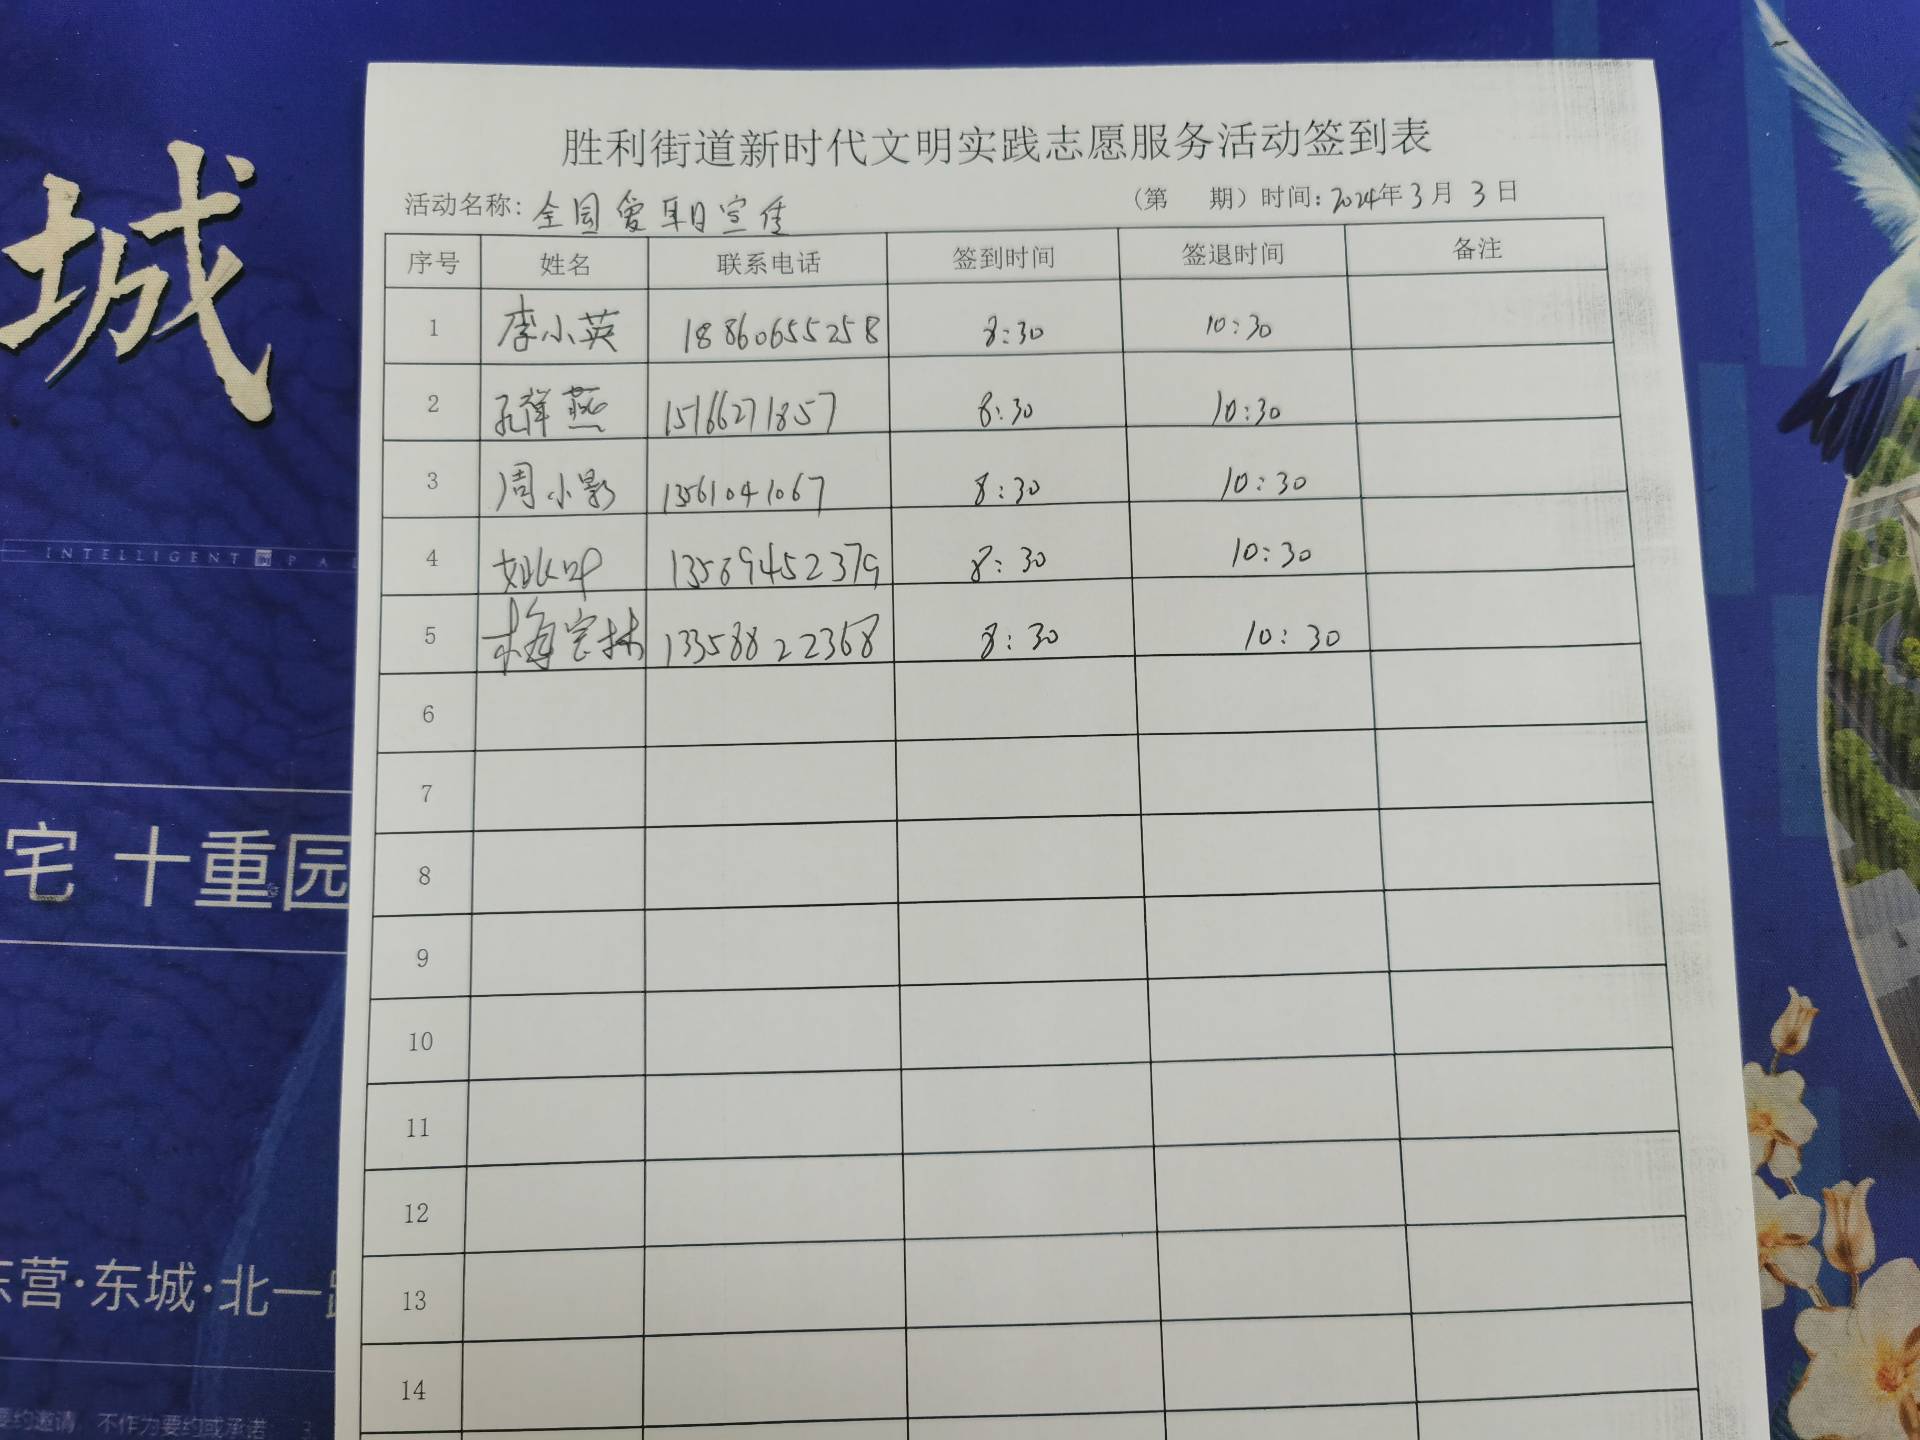 胜利街道新时代文明实践志愿服务活动签到表
活动名称: 全国爱耳日宣传 (第 期) 时间: 2024年3月3日
序号 姓名 联系电话 签到时间 签退时间 备注
1 李小英 18860655258 8:30 10:30
2 孔祥燕 15166271857 8:30 10:30
3 周小影 13561041067 8:30 10:30
4 13589452379 8:30 10:30
5 梅宝林 13358822368 8:30 10:30
6
7
8
9
10
11
12
13
14
城
INTELLIGENT
宅 十重园
东营·东城·北一路
要约邀请,不作为要约或承诺